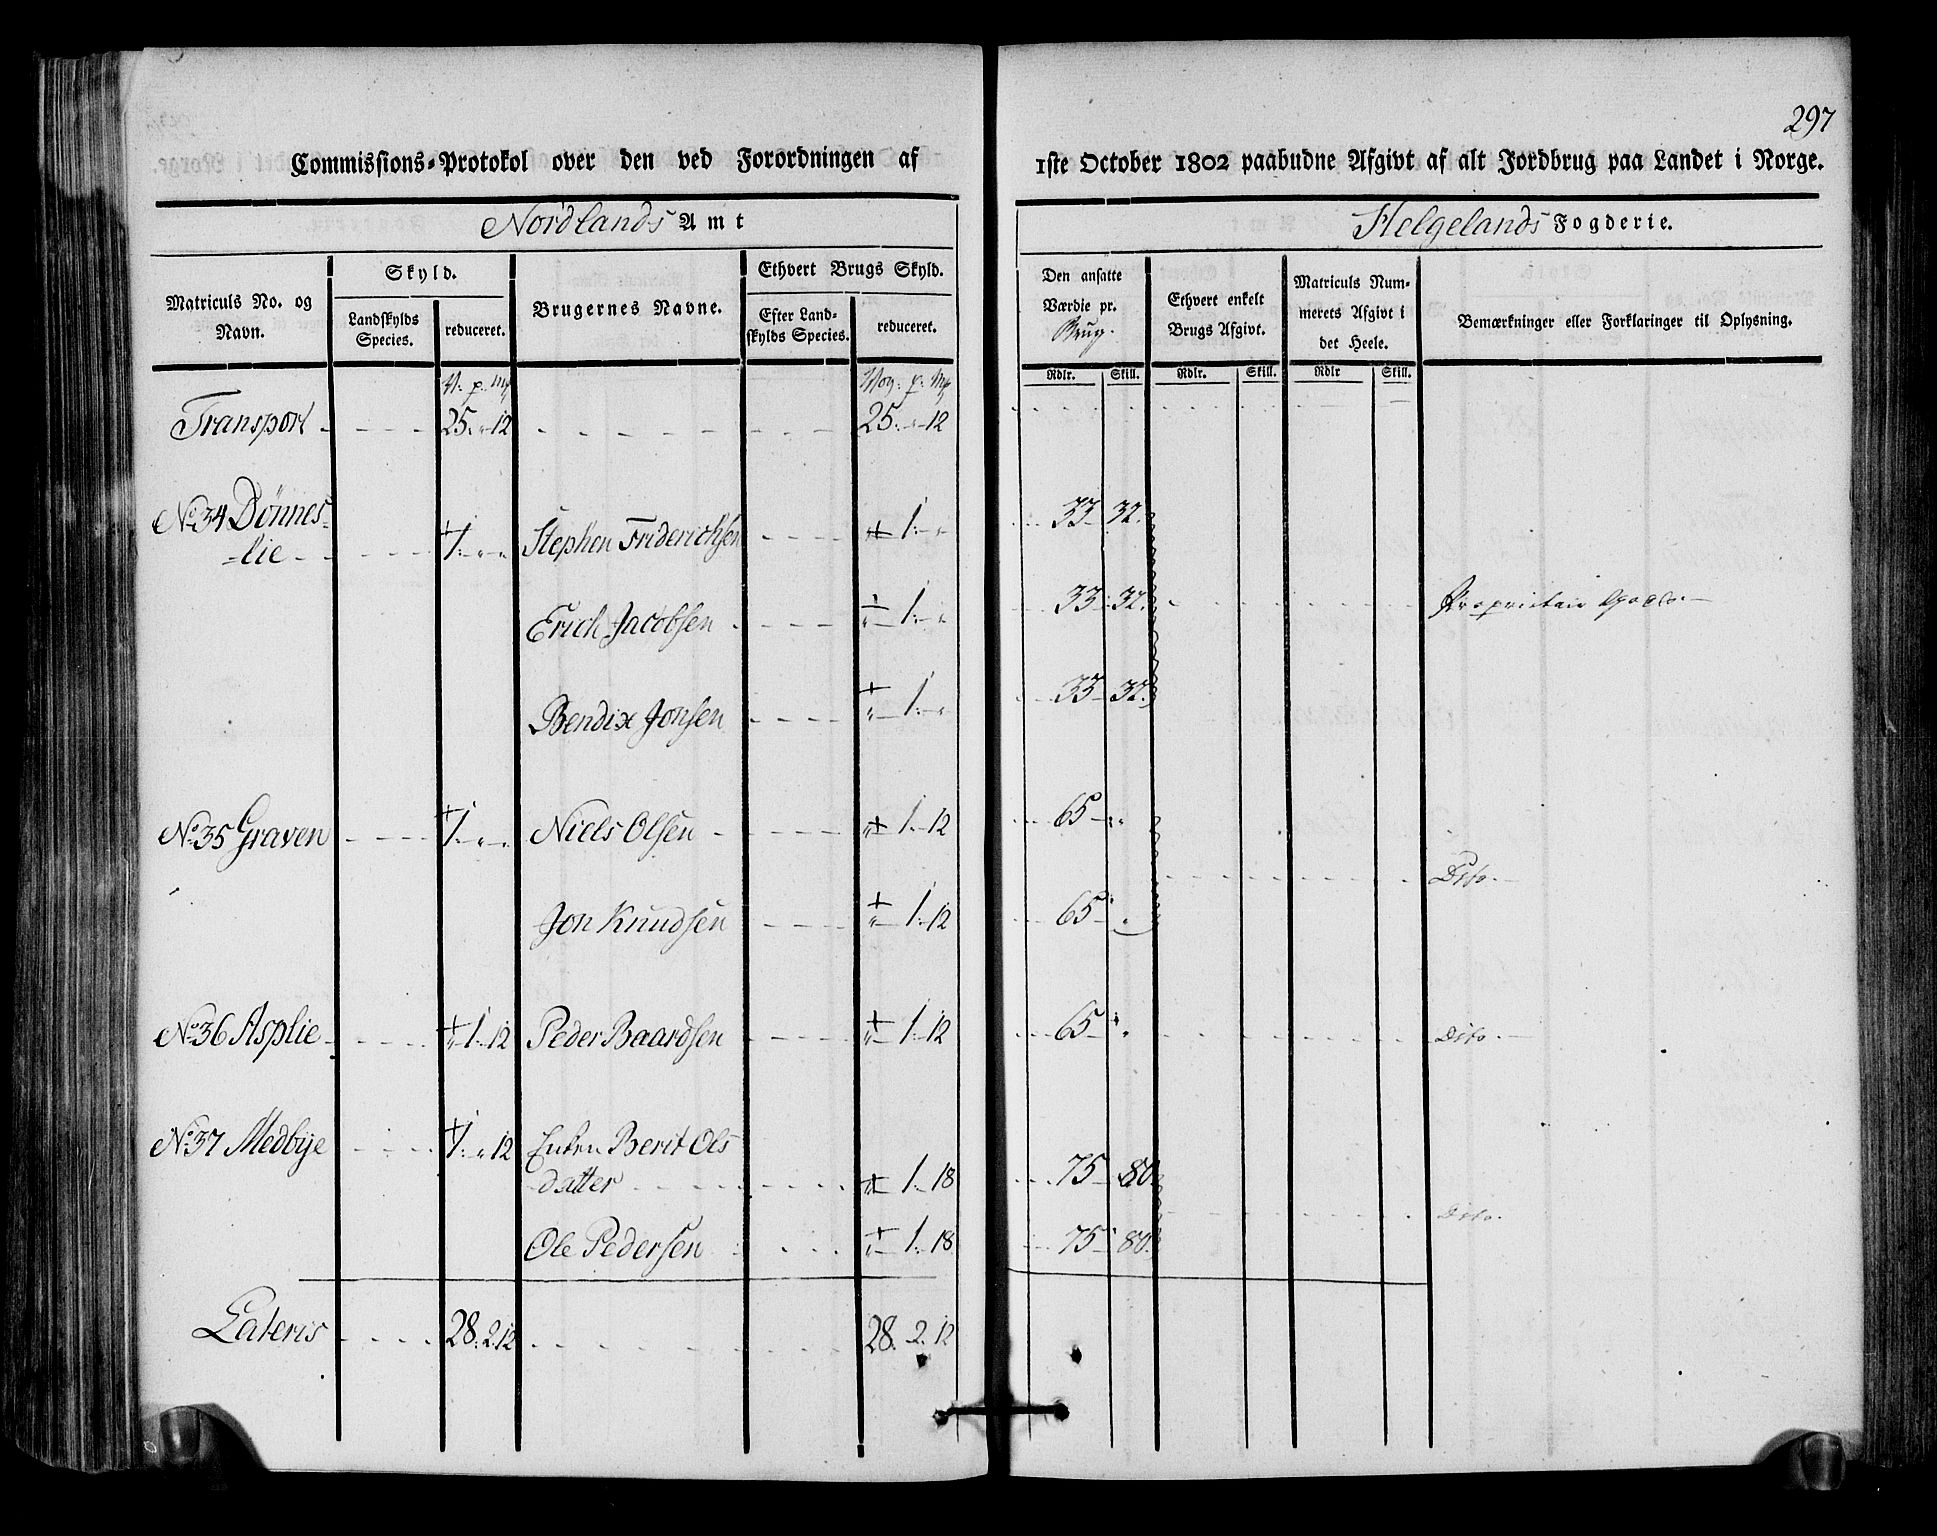 297
Commissions-Protokol over den ved Forordningen af
1ste October 1802 paabudne Afgivt af alt Jordbrug paa Landet i Norge.
Nordlands Amt
Helgelands Fogderie.
Matriculs No. og Navn.
Skyld.
Landskylds Species.
reduceret.
Brugernes Navne.
Ethvert Brugs Skyld.
Efter Landskylds Species.
reduceret.
Den ansatte Værdie pr. Brug.
Ethvert enkelt Brugs Afgivt.
Matriculs Nummerets Afgivt i det Heele.
Bemærkninger eller Forklaringer til Oplysning.
Rdlr. Skill. Rdlr. Skill. Rdlr Skill.
V. p. Mk Vog: p: Mk
Transport 25. " 12 25. " 12
No 34 Dønnes-
-lie 1. " " Stephen Friderichsen " 1. " 33 32.
Erich Jacobsen " 1. " 33 32. Proprietair Gods.
Bendix Jonsen " 1. " 33 32.
No 35 Graven 1. " " Niels Olsen " 1. 12 65 "
Dito.
Jon Knudsen " 1. 12 65 "
No 36 Asplie " 1. 12 Peder Baardsen " 1. 12 65 " Dito.
No 37 Medbye 1. " 12 Enken Berit Ols
datter " 1. 18 75 80.
Dito.
Ole Pedersen " 1. 18 75 80.
Lateris 28. 2. 12 28. 2. 12